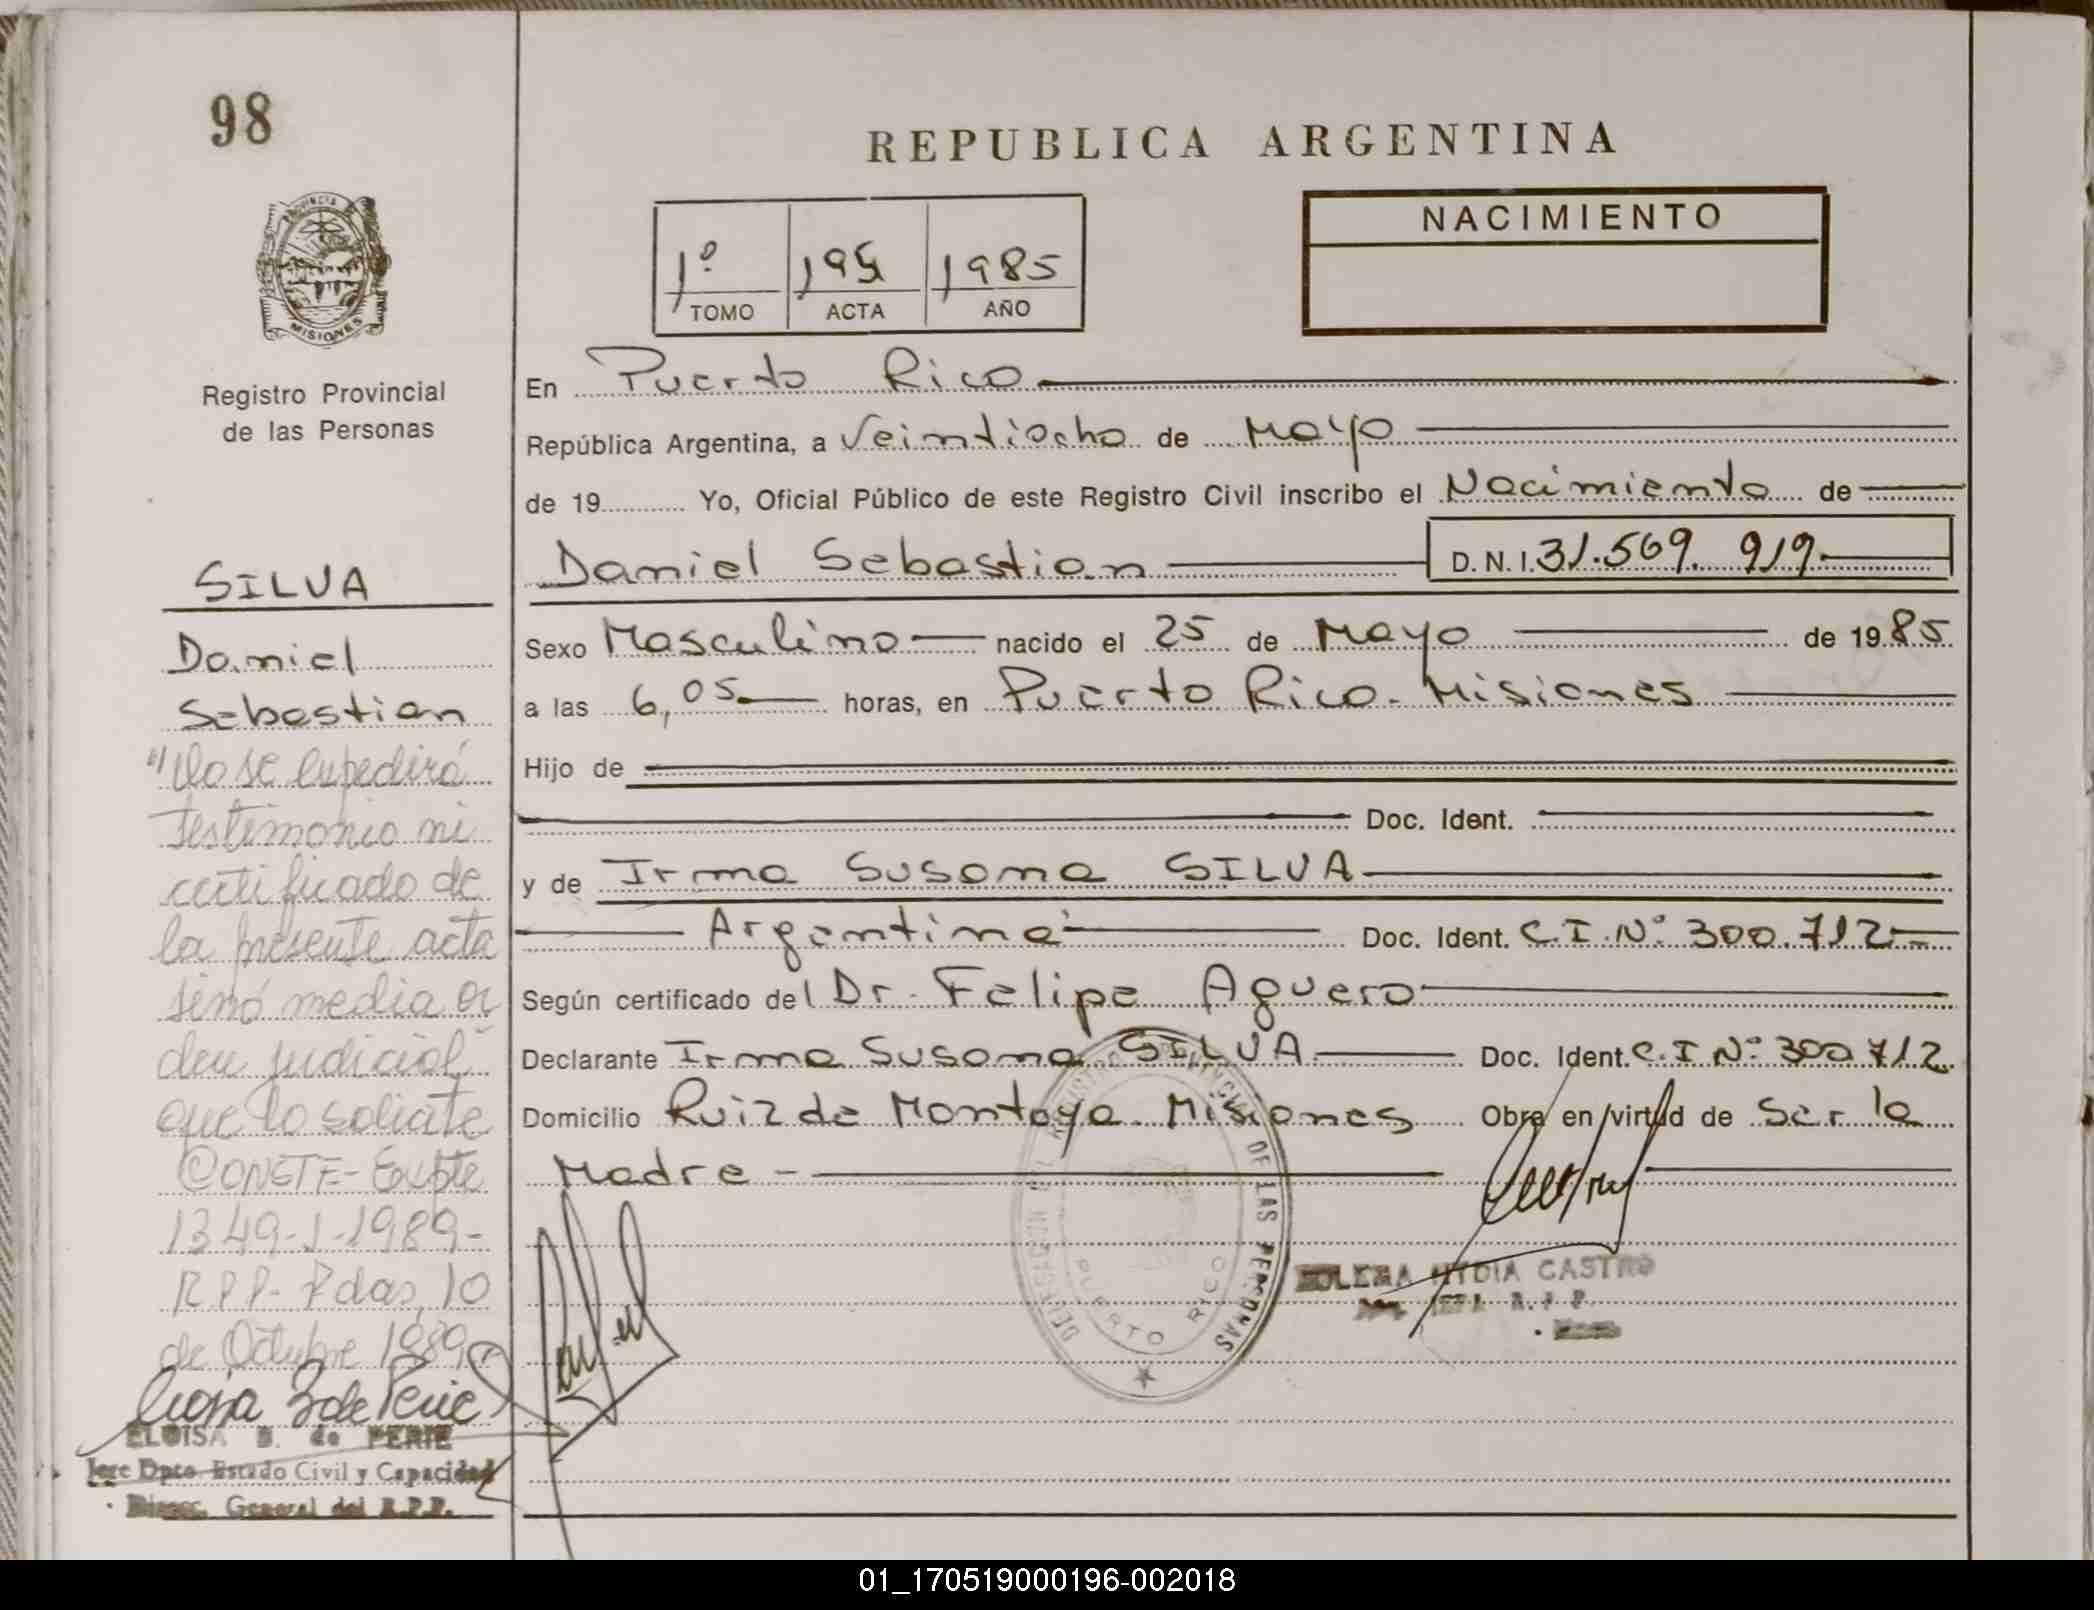 98
REPUBLICA ARGENTINA
PROVINCIA DE
MISIONES
1º TOMO
195 ACTA
1985 AÑO
NACIMIENTO
Registro Provincial
de las Personas
En Puerto Rico
República Argentina, a Veintiocho de Mayo
de 19 Yo, Oficial Público de este Registro Civil inscribo el Nacimiento de
Daniel Sebastian D. N. I. 31.569.919.
Sexo Masculino nacido el 25 de Mayo de 1985
a las 6,05 horas, en Puerto Rico - Misiones
Hijo de
Doc. Ident.
y de Irma Susana SILVA
Argentina Doc. Ident. C.I. Nº 300.712
Según certificado del Dr. Felipe Aguero
Declarante Irma Susana SILVA Doc. Ident. C.I Nº 300.712
Domicilio Ruiz de Montoya Misiones Obra en virtud de Ser la
Madre -
SILVA
Daniel
Sebastian
"No se expedirá
testimonio ni
certificado de
la presente acta
sinó media or
den judicial"
que lo solicite
CONSTE - Expte
1349-J-1989-
R.P.P.- Pdas, 10
de Octubre 1989
ELOISA B. de PERIE
Jefe Dpto. Estado Civil y Capacidad
Direcc. General del R.P.P.
DELEGACION DEL REGISTRO PROVINCIAL DE LAS PERSONAS
PUERTO RICO
CASTRO
01_170519000196-002018